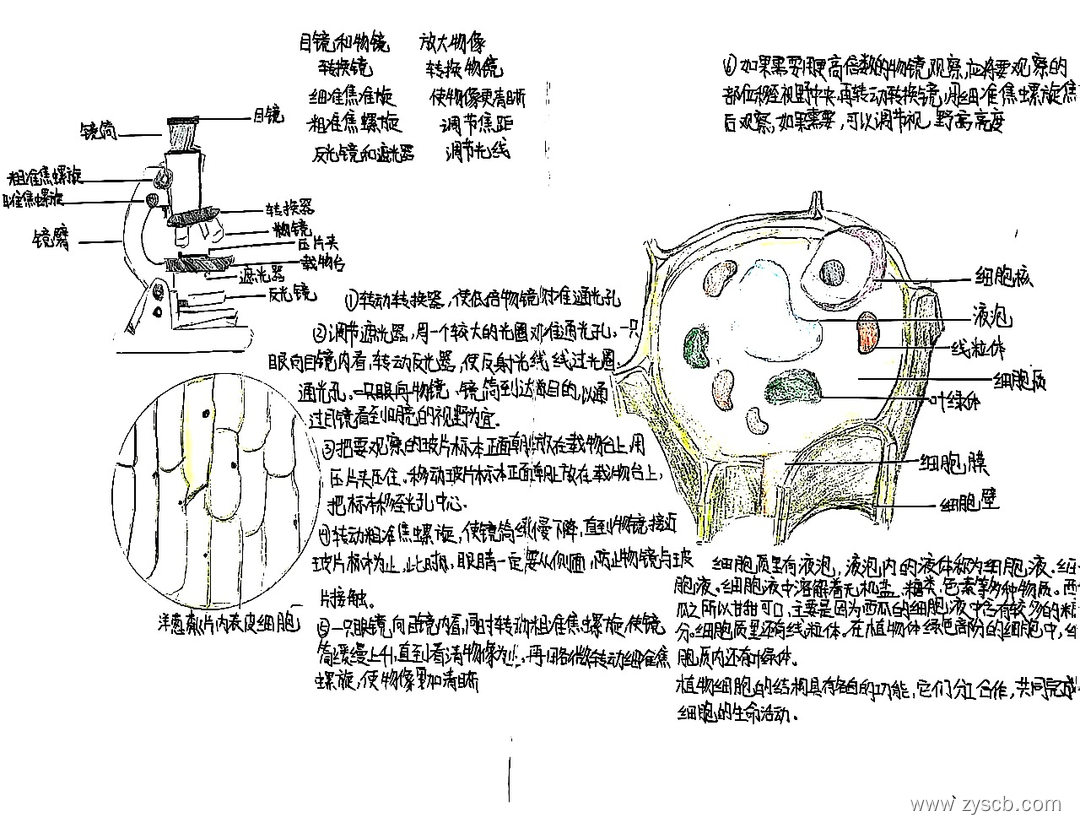 目镜和物镜 放大物像
转换镜 转换物镜
细准焦准旋 使物像更清晰
粗准焦螺旋 调节焦距
反光镜和遮光器 调节光线
目镜
镜筒
粗准焦螺旋
准焦螺旋
镜臂
转换器
物镜
压片夹
载物台
遮光器
反光镜
①转动转换器,使低倍物镜对准通光孔
②调节遮光器,用一个较大的光圈对准通光孔,一只
眼向目镜内看,转动反光器,使反射光线线过光圈,
通光孔,一只眼向物镜、镜筒到达
以通
过目镜看到
的视野为宜.
③把要观察的玻片标本正面朝
放在载物台上,用
压片夹压住.移动玻片标本正面朝
放在载物台上,
把标本移
光孔中心.
④转动粗准焦螺旋,使镜筒缓慢下降,直到物镜接近
玻片标本为止,此时,眼睛一定要从侧面,防止物镜与玻
片接触.
一只眼镜向目镜内看,同时转动粗准焦螺旋,使镜
筒缓缓上升,直到看清物像为止.再
略微转动细准焦
螺旋,使物像更加清晰
洋葱鳞片内表皮细胞
⑥如果需要用更高倍数的物镜观察,应将要观察的
部位移至视野中央,再转动转换镜,用细准焦螺旋焦
后观察,如果需要,可以调节视野亮度
细胞核
液泡
线粒体
细胞质
叶绿体
细胞膜
细胞壁
细胞质里有液泡,液泡内的液体称为细胞液.
胞液.细胞液中溶解着无机盐、糖类、色素等多种物质。西
瓜之所以甘甜可口,主要是因为西瓜的细胞液中含有较多的糖
分.细胞质里还有线粒体.在植物体绿色部分的细胞中,
胞质内还有叶绿体.
植物细胞的结构具有各自的功能,它们分工合作,共同完成
细胞的生命活动.
www.zyscb.com